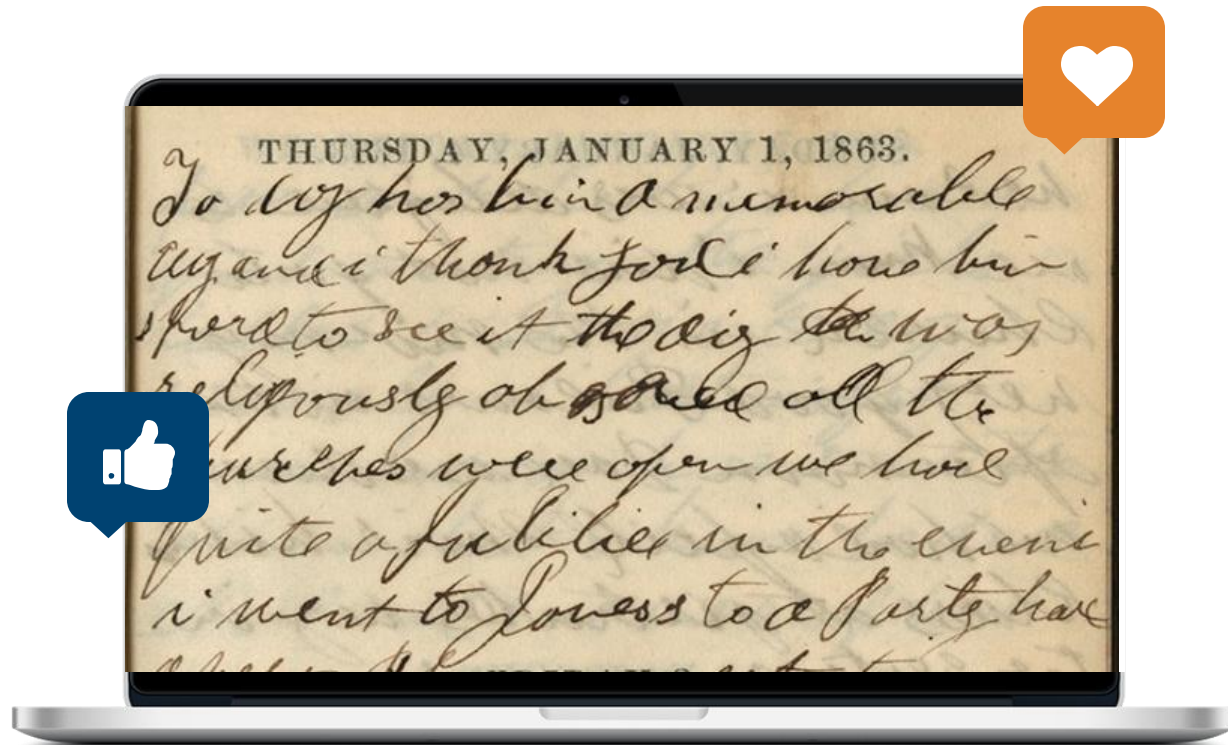 THURSDAY, JANUARY 1, 1863.
To day has bin a memorable
day and i thank god i have bin
sperd to see it the day was
religiously observed all the
churches were open we had
quite a Jubiliee in the eveni
i went to Joness to a Party had